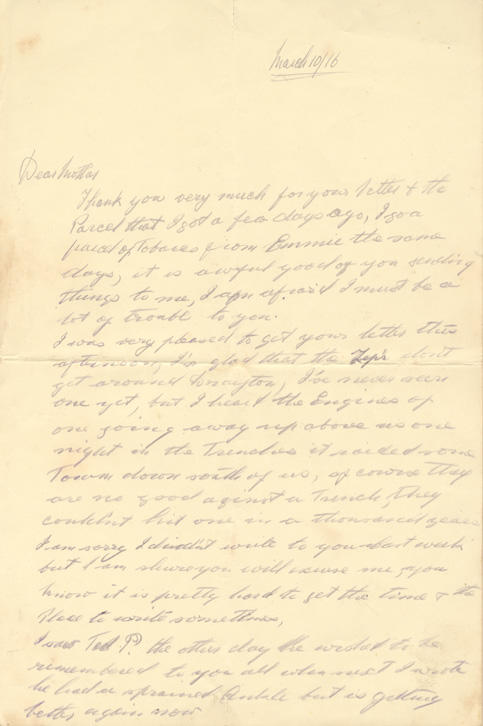 March 10/16
Dear Mother
Thank you very much for your letter & the
Parcel that I got a few days ago, I got a
parcel of Tobacco from Emmie the same
days, it is awful good of you sending
things to me, I am afraid I must be a
lot of trouble to you.
I was very pleased to get your letter this
afternoon, I'm glad that the Zep's don't
get around Drayton, I've never seen
one yet, but I heard the Engines of
one going away up above us one
night in the Trenches it raided some
Town down south of us, of course they
are no good against a Trench, they
couldn't hit one in a thousand years
I am sorry I didn't write to you last week
but I am shure you will excuse me, you
know it is pretty hard to get the time & the
Place to write sometimes,
I saw Ted P? the other day he wished to be
remembered to you all when next I wrote
he had a sprained Ankle but is getting
better again now